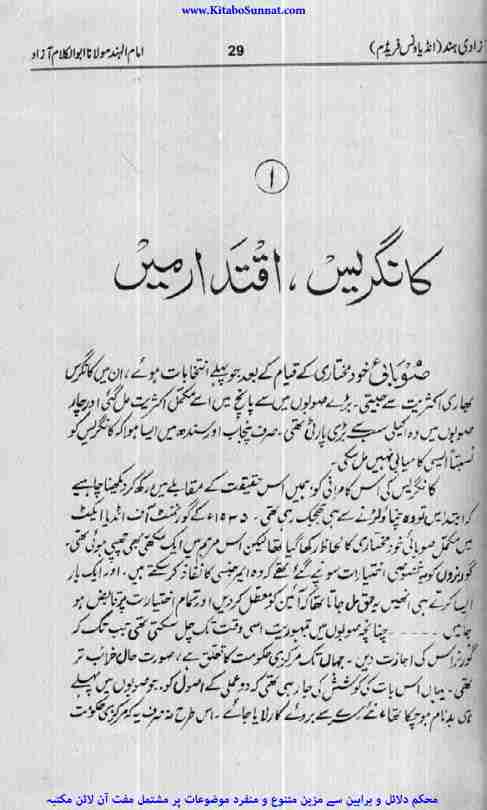 www.KitaboSunnat.com
آزادی ہند (انڈیا ونس فریڈم)
29
امام الہند مولانا ابوالکلام آزاد
۱
کانگریس، اقتدار میں
صوبائی خود مختاری کے قیام کے بعد جو پہلے انتخابات ہوئے، ان میں کانگرس
بھاری اکثریت سے جیتی۔ بڑے صوبوں میں سے پانچ میں اسے مکمل اکثریت مل گئی اور چار
صوبوں میں وہ اکیلی سب سے بڑی پارٹی تھی۔ صرف پنجاب اور سندھ میں ایسا ہوا کہ کانگریس کو
نسبتاً ایسی کامیابی نہیں مل سکی۔
کانگریس کی اس کامرانی کو ہمیں اس حقیقت کے مقابلے میں رکھ کر دیکھنا چاہیے
کہ ابتدا میں تو وہ چناؤ لڑنے سے ہی جھجک رہی تھی۔ ۱۹۳۵ء کے گورنمنٹ آف انڈیا ایکٹ
میں مکمل صوبائی خود مختاری کا لحاظ رکھا گیا تھا لیکن اس مرہم میں ایک مکھی بھی چھپی ہوئی تھی۔
گورنروں کو یہ خصوصی اختیارات سونپے گئے تھے کہ وہ ایمرجنسی کا نفاذ کر سکتے ہیں۔ اور ایک بار
ایسا کرتے ہی انھیں یہ حق مل جاتا تھا کہ آئین کو معطل کر دیں اور تمام اختیارات پر قابض ہو
جائیں ۔۔۔۔۔ چنانچہ صوبوں میں جمہوریت اسی وقت تک چل سکتی تھی جب تک کہ
گورنر اس کی اجازت دیں۔ جہاں تک مرکزی حکومت کا تعلق ہے، صورت حال خراب تر
تھی۔ یہاں اس بات کی کوشش کی جا رہی تھی کہ دو عملی کے اصول کو، جو صوبوں میں پہلے
ہی بدنام ہو چکا تھا، نئے سرے سے بروئے کار لایا جائے۔ اس طرح نہ صرف یہ کہ مرکزی حکومت
محکم دلائل و براہین سے مزین متنوع و منفرد موضوعات پر مشتمل مفت آن لائن مکتبہ